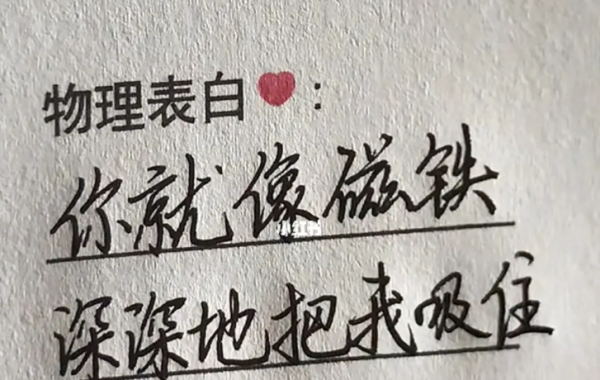 物理表白❤:
你就像磁铁
小红书
深深地把我吸住